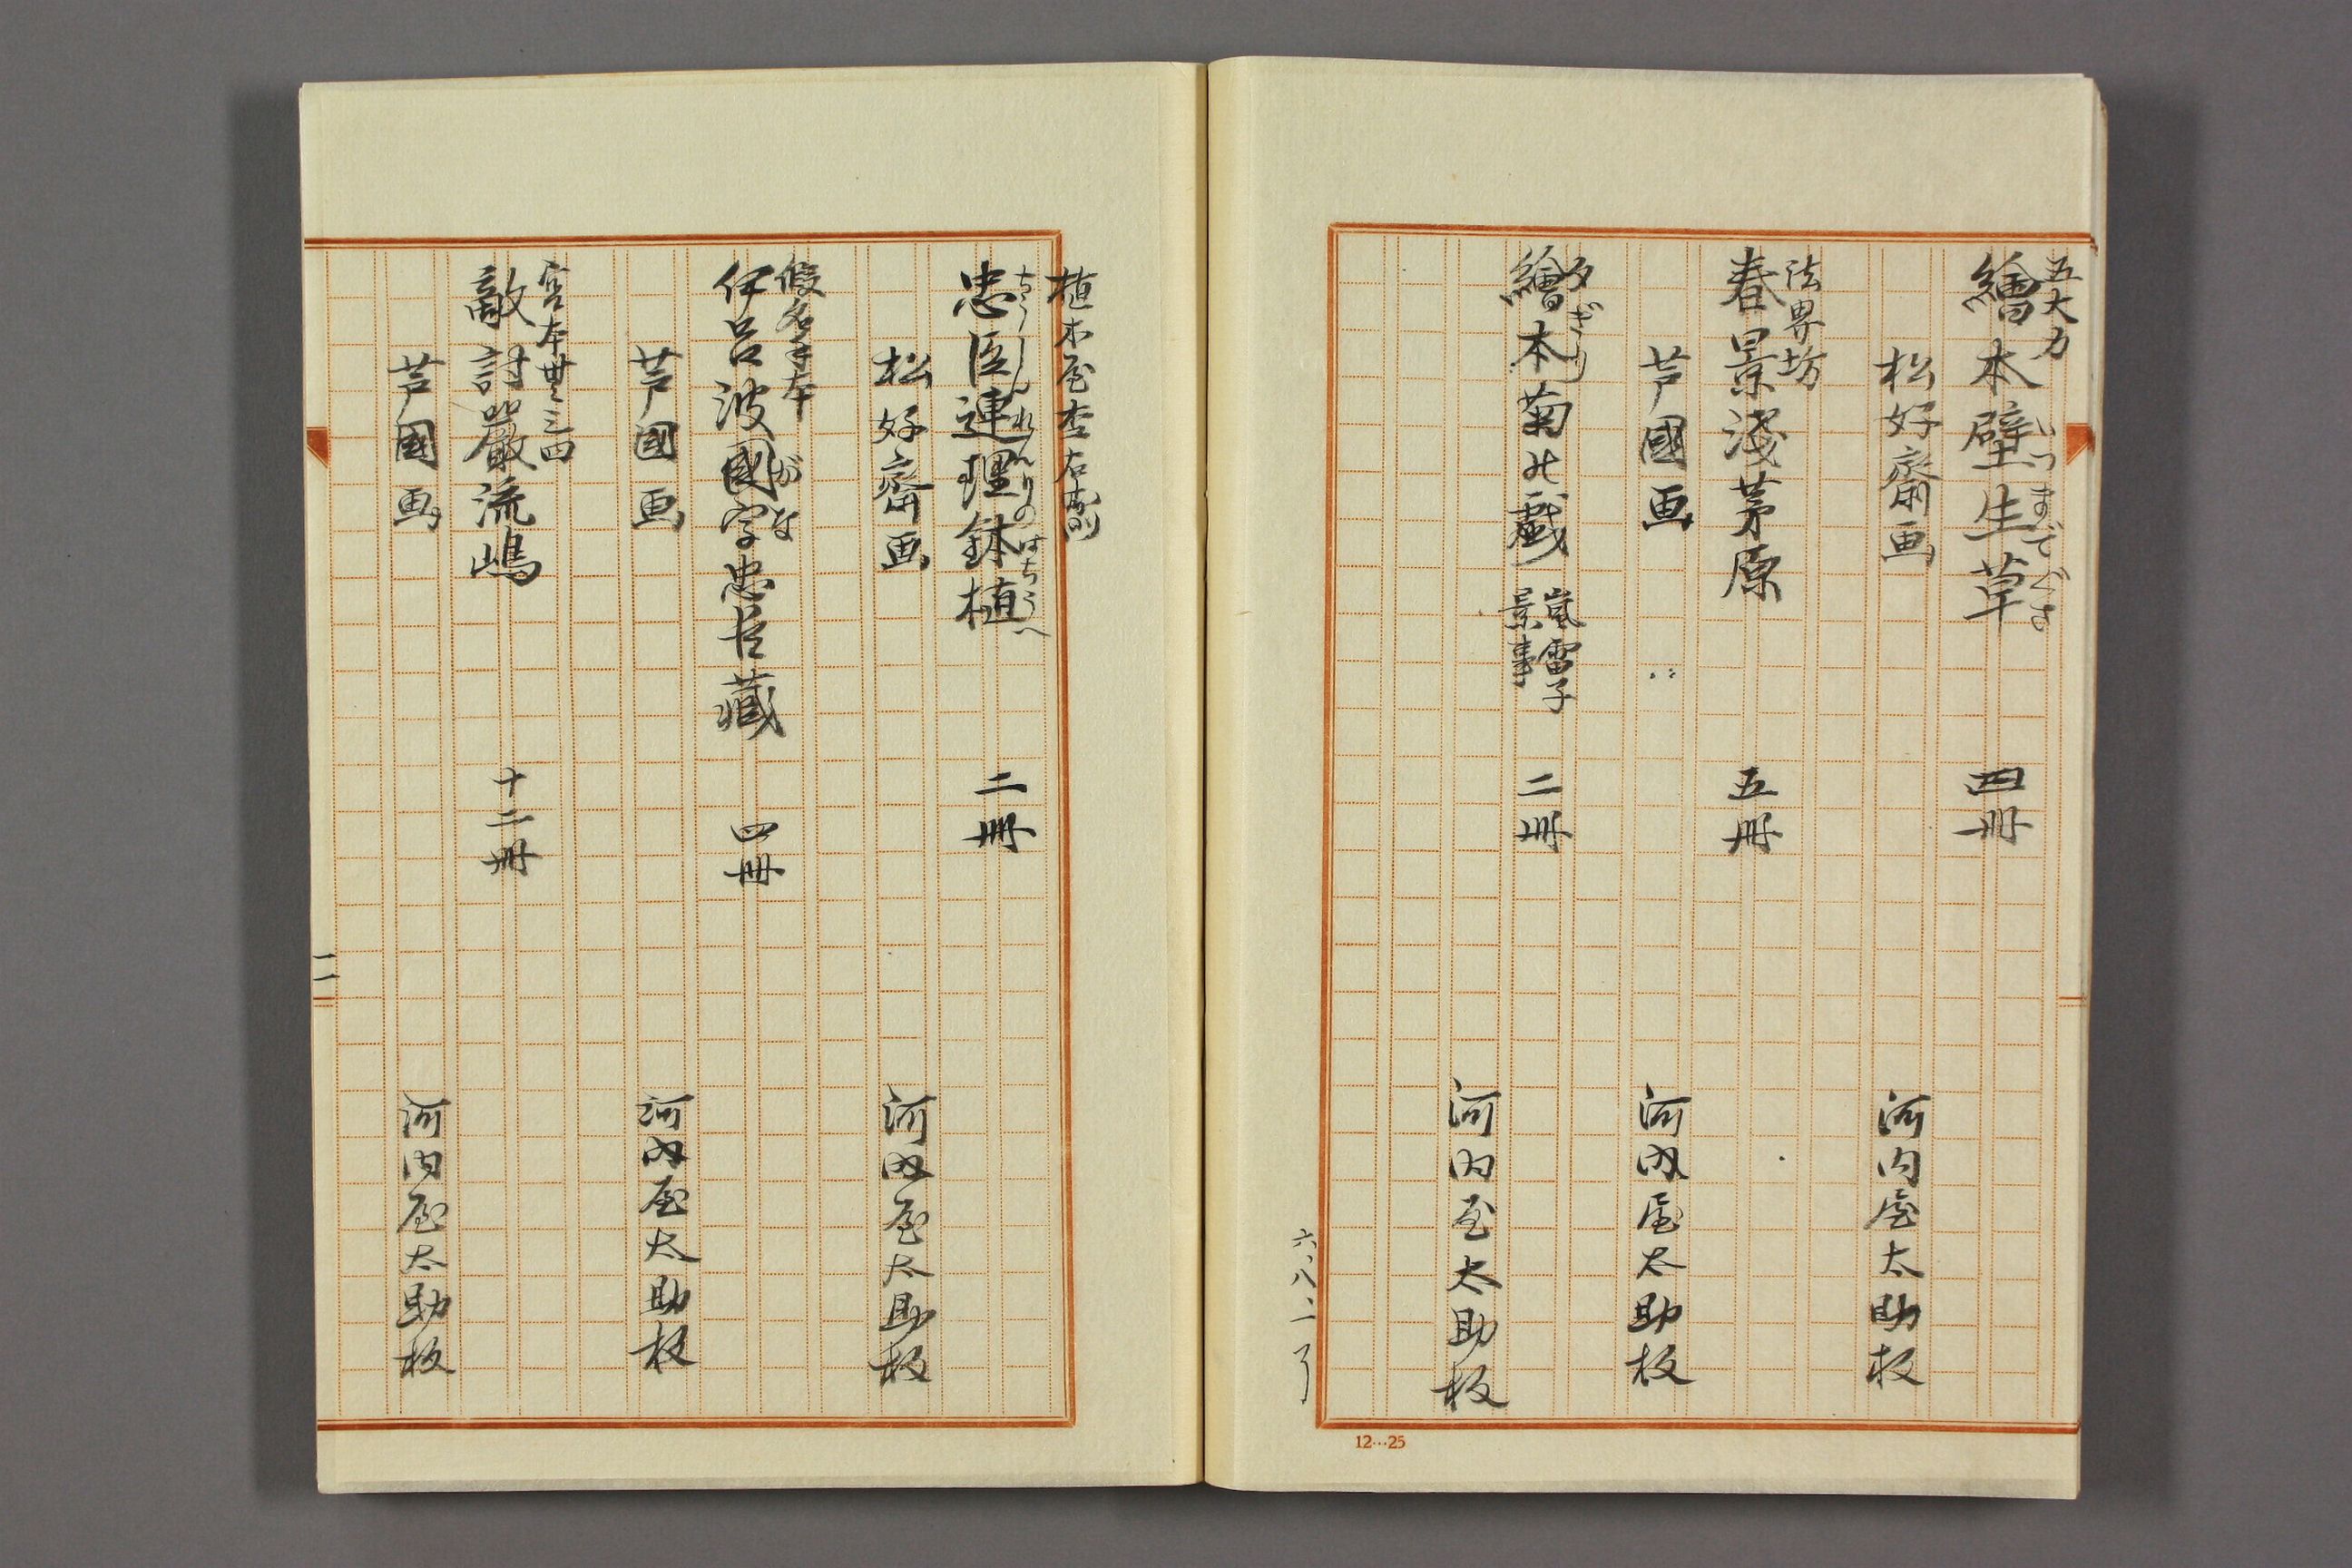 五大力
繪本壁生草 四冊
いつまでぐさ
松好齋画 河内屋太助板
法界坊
春景淺茅原 五冊
芦國画 河内屋太助板
夕ぎり
繪本菊の戲 嵐雷子 景事 二冊
河内屋太助板
六、八、二一 了
12…25
植木屋杢右衛門
ちうしんれんりのはちうへ
忠臣連理鉢植 二冊
松好齋画 河内屋太助板
假名手本
伊呂波國字忠臣藏 四冊
がな
芦國画 河内屋太助板
宮本
敵討巖流嶋 十二冊
芦國画 河内屋太助板